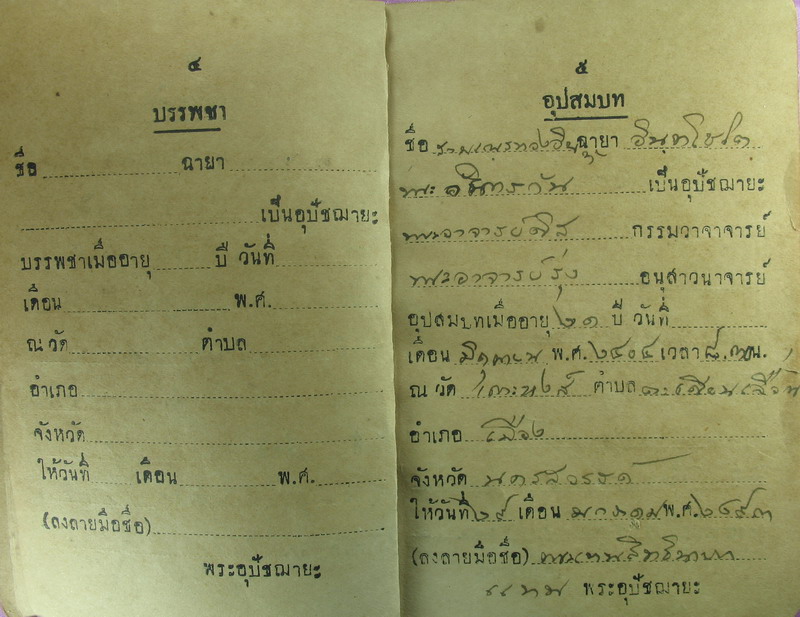 ๔
บรรพชา
ชื่อ ฉายา
เป็นอุปัชฌายะ
บรรพชาเมื่ออายุ ปี วันที่
เดือน พ.ศ.
ณ วัด ตำบล
อำเภอ
จังหวัด
ให้วันที่ เดือน พ.ศ.
(ลงลายมือชื่อ)
พระอุปัชฌายะ
๕
อุปสมบท
ชื่อ ฉายา อินฺทโชโต
พระ เป็นอุปัชฌายะ
พระอาจารย์ กรรมวาจาจารย์
พระอาจารย์รุ่ง อนุสาวนาจารย์
อุปสมบทเมื่ออายุ ๒๑ ปี วันที่
เดือน พ.ศ. เวลา น.
ณ วัด ตำบล
อำเภอ เมือง
จังหวัด นครสวรรค์
ให้วันที่ ๒๙ เดือน พ.ศ. ๒๔๙๓
(ลงลายมือชื่อ)
แทน พระอุปัชฌายะ